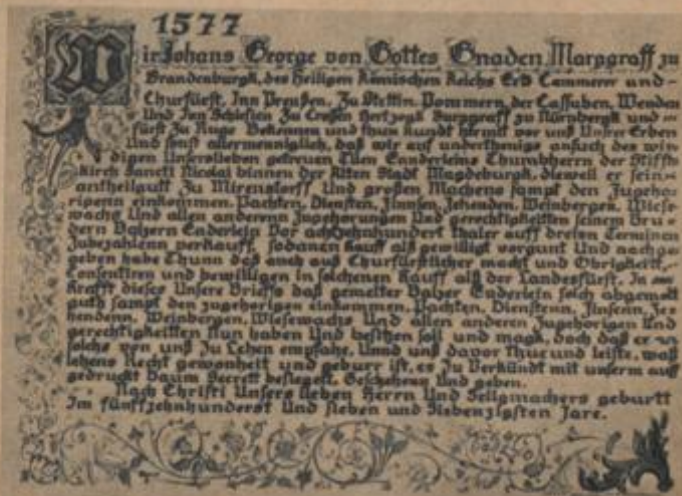 1577
Wir Johans George von Gottes Gnaden Marggraff zu
Brandenburgk, des Heiligen Römischen Reichs Ertz Cammerer und
Churfürst, Inn Preußen, Zu Stettin, Pommern, der Cassuben, Wenden
Und Inn Schlesien Zu Crossen Hertzogk Burggraff zu Nürnbergk und
Fürst Zu Ruge Bekennen und thun kundt hiemit vor uns Unsre Erben
Und sonst allermenniglich, daß wir auf underthenigs ansuch des wir
digen Unsers lieben getreuen Enderleins Thumbherrn der Stiffts
kirch Sancti Nicolai binnen der Alten Stadt Magdeburgk, dieweil er sein
antheilgutt Zu Mirenstorff Und großen Machens sampt den Zugeho-
rigenn einkommen, Pachten, Diensten, Zinnsen, Zehenden, Weinbergen, Wiese-
wachs Und allen anderen Zugehorungen Und gerechtigkeitten seinem Bru-
dern Enderlein Vor achtzehnhundert thaler auff dreien Terminen
verkaufft, sodanen kauff alß gewilligt vorgunt Und nachge-
geben habe Thunn daß auch auß Churfürstlicher macht und Obrigkeit,
Consentiren und bewilligen in solchenen Kauff alß der Landesfürst, In
Krafft dieses Unsers Brieffs daß gemelter Enderlein solch abgemelt
guth sampt den zugehorigen einkommen, Pachten, Dienstenn, Zinsenn, Ze-
hendenn, Weinbergen, Wiesewachs Und allen anderen Zugehorigen Und
gerechtigkeitten Nun haben Und besitzen soll und magk, doch daß er
solchs von uns Zu Lehen empfahe, Unnd uns davor Thue und leiste, waß
lehens Recht gewonheit und geburr ist, es Zu Verkündt mit unserm auff
gedruckt Daum Secrett besiegelt. Geschehenn Und geben.
Nach Christi Unsers lieben Herrn Und Seligmachers geburtt
Im fünffzehnhunderst Und sieben und Siebenzigsten Jare.